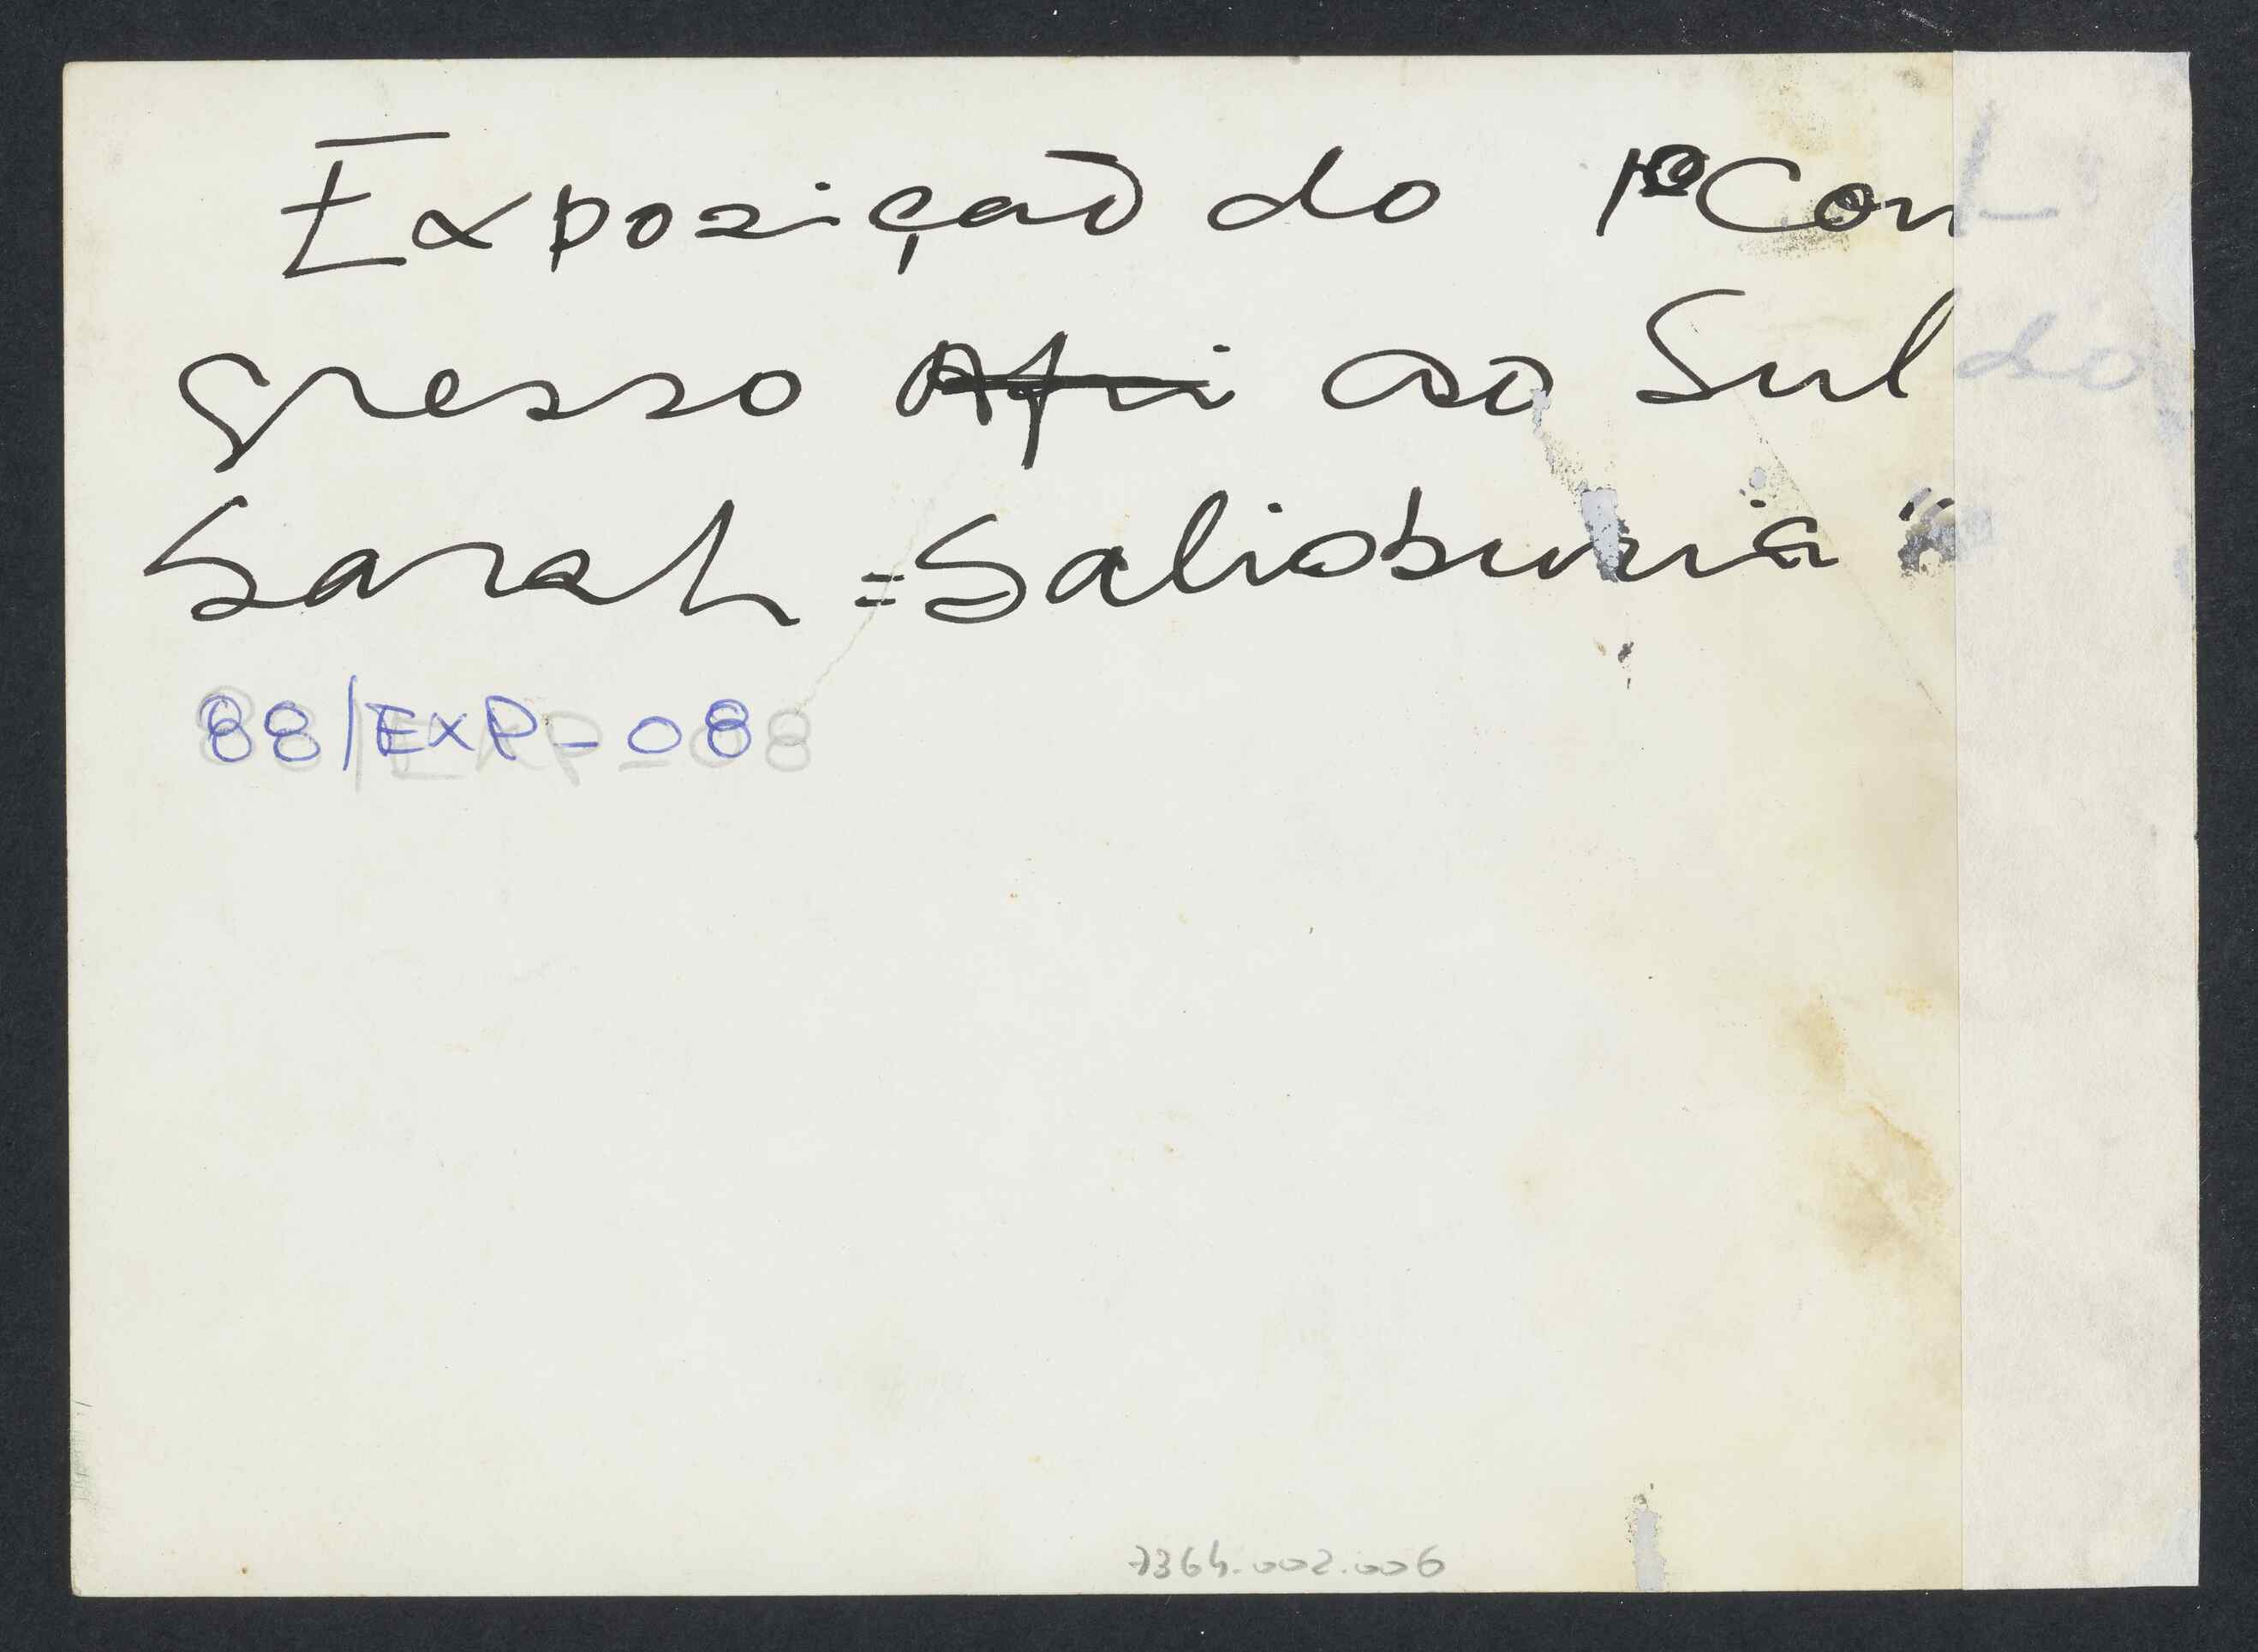 Exposição do 1º Con
gresso Afri ao Sul do
Sarah = Salisburia "
88/EXP-08
7364.002.006